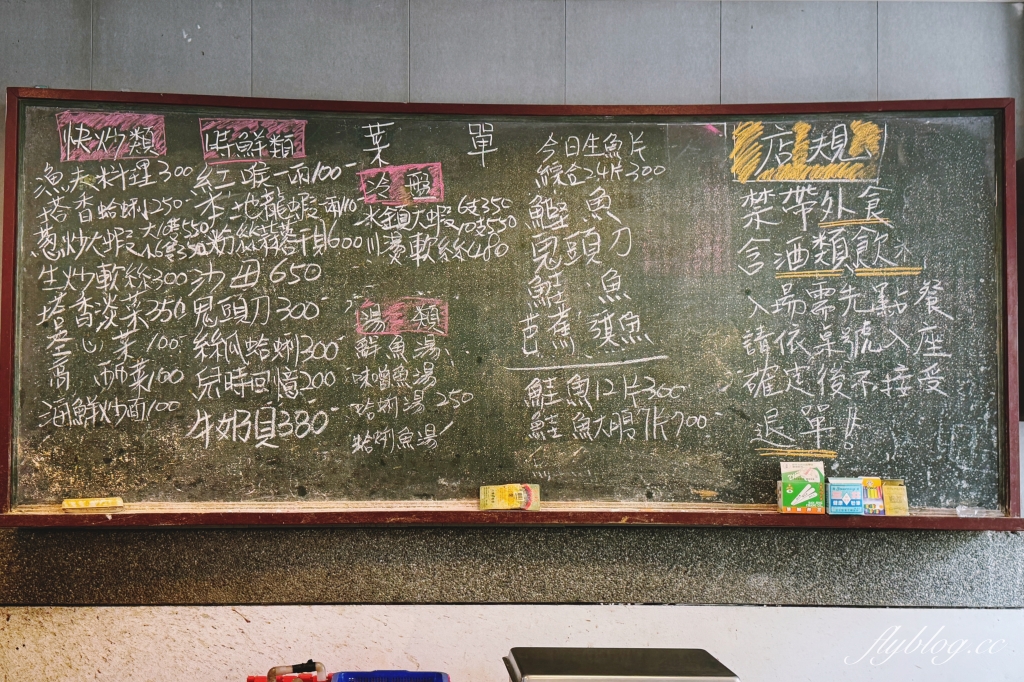 菜 單
快炒類
漁夫料理300
塔香蛤蜊小250
蔥炒大蝦
生炒軟絲300
塔香淡菜350
空心菜100
高麗菜100
海鮮炒面100
時鮮類
紅喉一兩100
本地龍蝦
粉絲扇貝600
沙母650
鬼頭刀300
絲瓜蛤蜊300
兒時回憶200
牛奶貝380
冷盤
水晶大蝦6支350 10支550
川燙軟絲480
湯類
鮮魚湯
味噌魚湯
蛤蜊湯250
蛤蜊魚湯
今日生魚片
綜合24片300
鰹魚
鬼頭刀
鮭魚
芭蕉旗魚
鮭魚12片300
鮭魚大腹7片700
店規
禁帶外食
含酒類飲
入場需先點餐
請依桌號入座
確定後不接受
退單!!
flyblog.cc